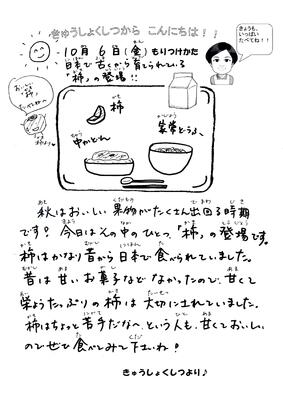 きゅうしょくしつから こんにちは！！
きょうも、
いっぱい
たべてね！！
10月 6日(金) もりつけかた
日本で古くから育てられている
「柿」の登場!!
柿
中かどん
家常とうふ
秋はおいしい果物がたくさん出回る時期
です！今日はその中のひとつ、「柿」の登場です。
柿はかなり昔から日本で食べられていました。
昔は甘いお菓子などなかったので、甘くて
栄ようたっぷりの柿は大切にされていました。
柿はちょっと苦手だな〜、という人も、甘くておいしい
のでぜひ食べてみて下さいね！
きゅうしょくしつより♪